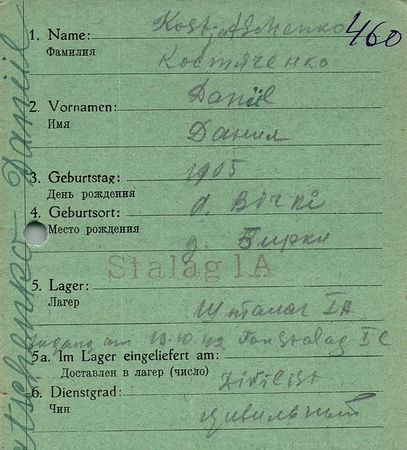 1. Name:
460
Фамилия
Костяченко
2. Vornamen: Daniil
Имя Данил
3. Geburtstag: 1905
День рождения
4. Geburtsort: d.
Место рождения д. Бирки
Stalag 1A
5. Lager:
Лагер Шталаг IA
Zugang am 19.10.42 von Stalag
5a. Im Lager eingeliefert am:
Доставлен в лагер (число)
6. Dienstgrad: Zivilist
Чин цивильный
Daniil